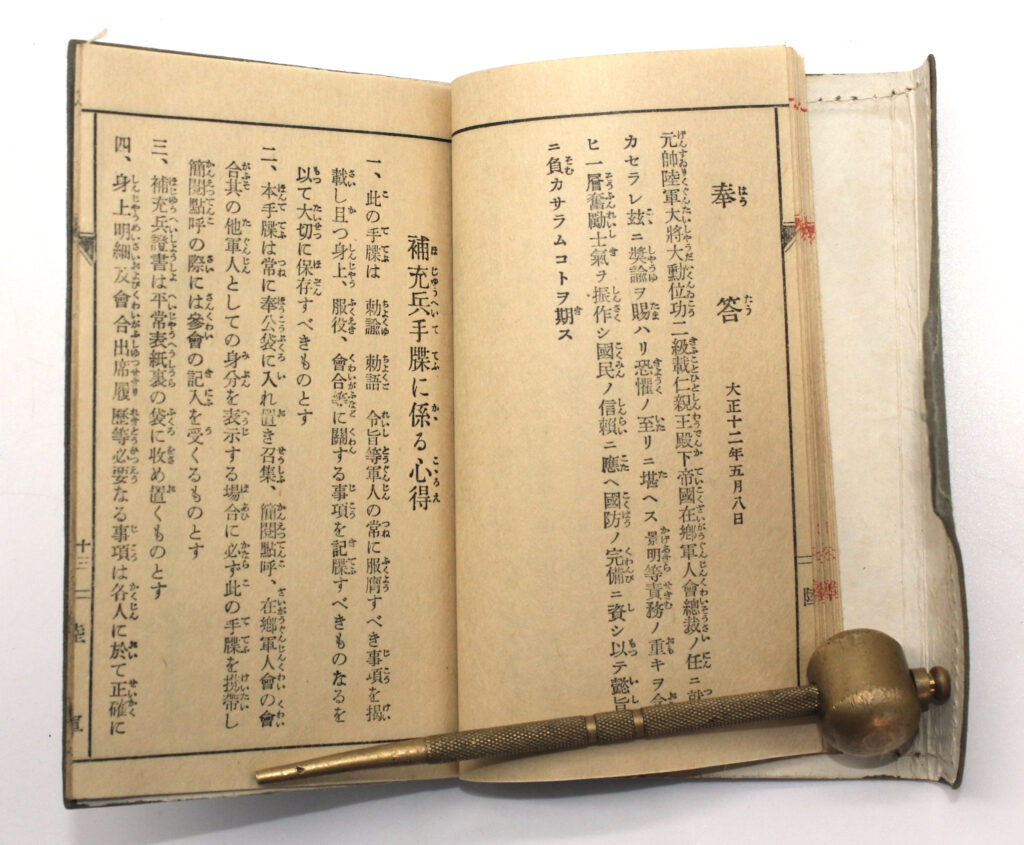 奉答
大正十二年五月八日
元帥陸軍大將大勳位功二級載仁親王殿下帝國在鄕軍人會總裁ノ任ニ
カセラレ玆ニ奬諭ヲ賜ハリ恐懼ノ至リニ堪ヘス景明等責務ノ重キヲ
ヒ一層奮勵士氣ヲ振作シ國民ノ信賴ニ應ヘ國防ノ完備ニ資シ以テ懿旨
ニ負カサラムコトヲ期ス
補充兵手牒に係る心得
一、此の手牒は 勅諭 勅語 令旨等軍人の常に服膺すべき事項を揭
載し且つ身上、服役、會合等に關する事項を記牒すべきものなるを
以て大切に保存すべきものとす
二、本手牒は常に奉公袋に入れ置き召集、簡閱點呼、在鄕軍人會の會
合其の他軍人としての身分を表示する場合に必ず此の手牒を携帶し
簡閱點呼の際には參會の記入を受くるものとす
三、補充兵證書は平常表紙裏の袋に收め置くものとす
四、身上明細及會合出席履歷等必要なる事項は各人に於て正確に
十三
陸軍